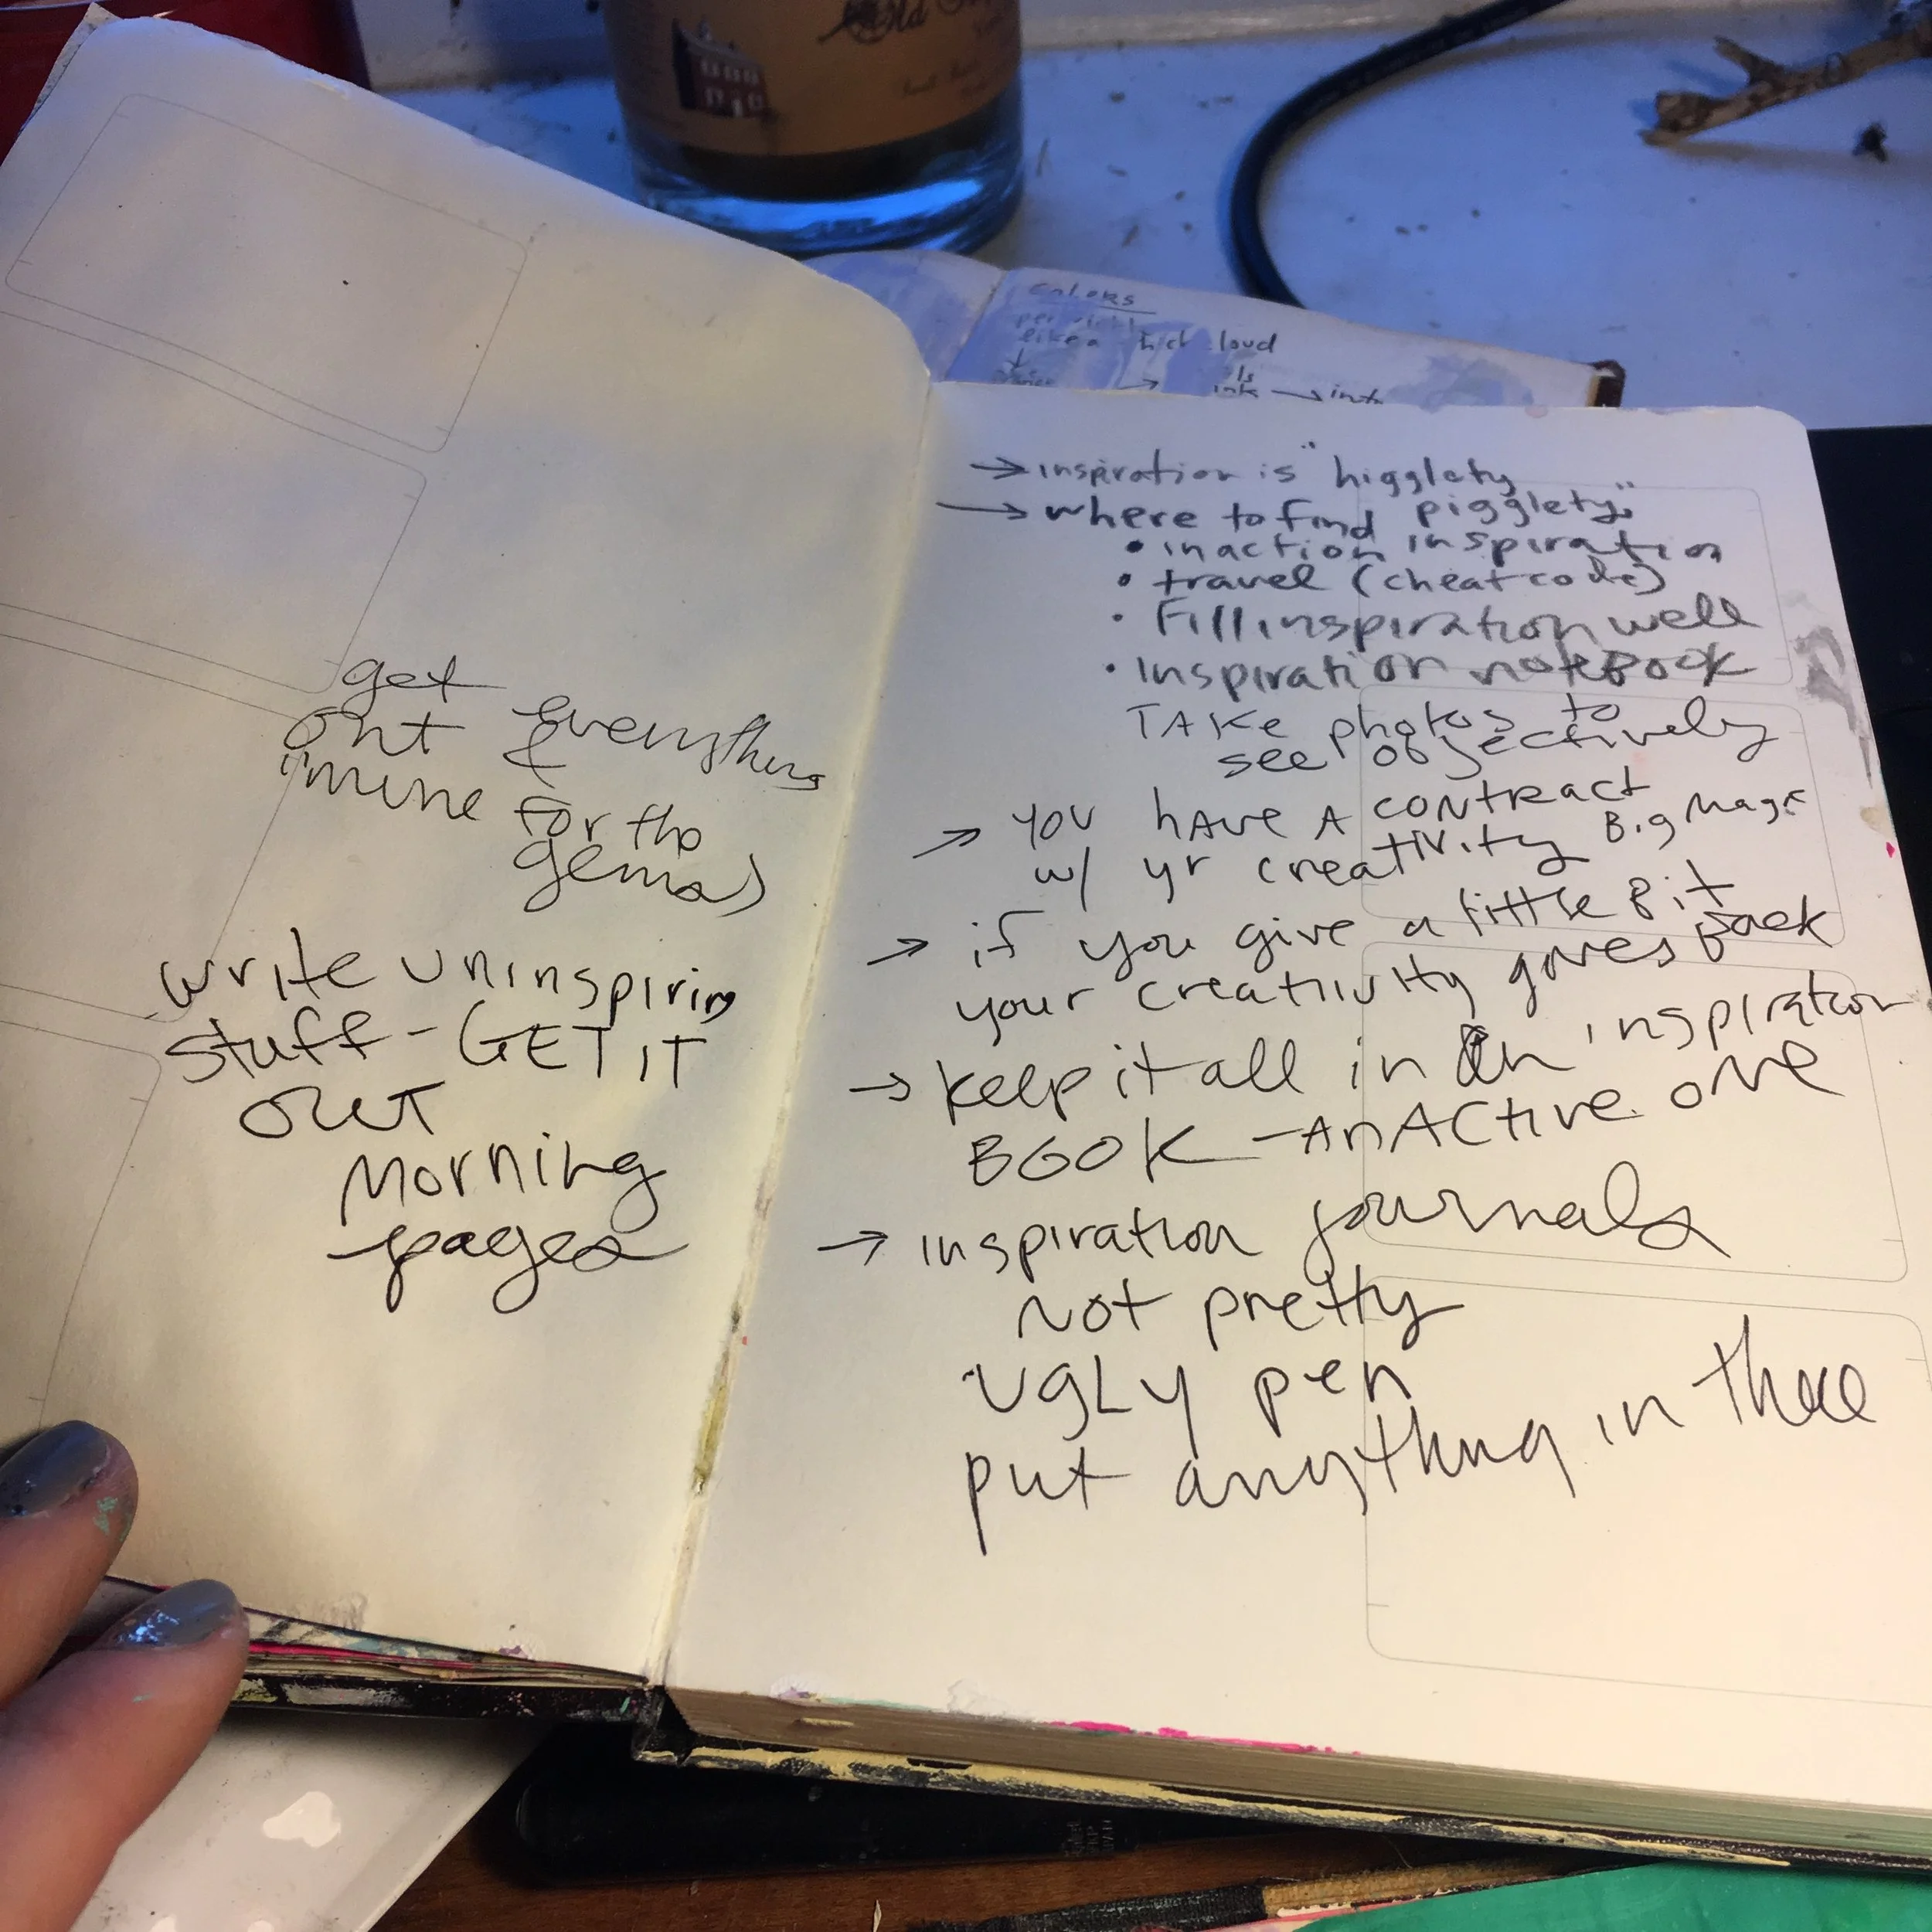 Old
COLORS
like a thick cloud
ink → into
get everything
out &
"mine for the
gems)
write uninspiring
stuff - GET IT
OUT
Morning
pages
→ inspiration is "higglety
pigglety."
→ where to find
• inaction inspiration
• travel (cheatcode)
• Fill inspiration well
• Inspiration notebook
TAKE photos to
see objectively
→ you have A contract
w/ yr creativity Big Magic
→ if you give a little Bit
your creativity gives Back
→ keep it all in an inspiration
BOOK - An Active one
→ inspiration journals
not pretty
UgLy pen
put anything in there